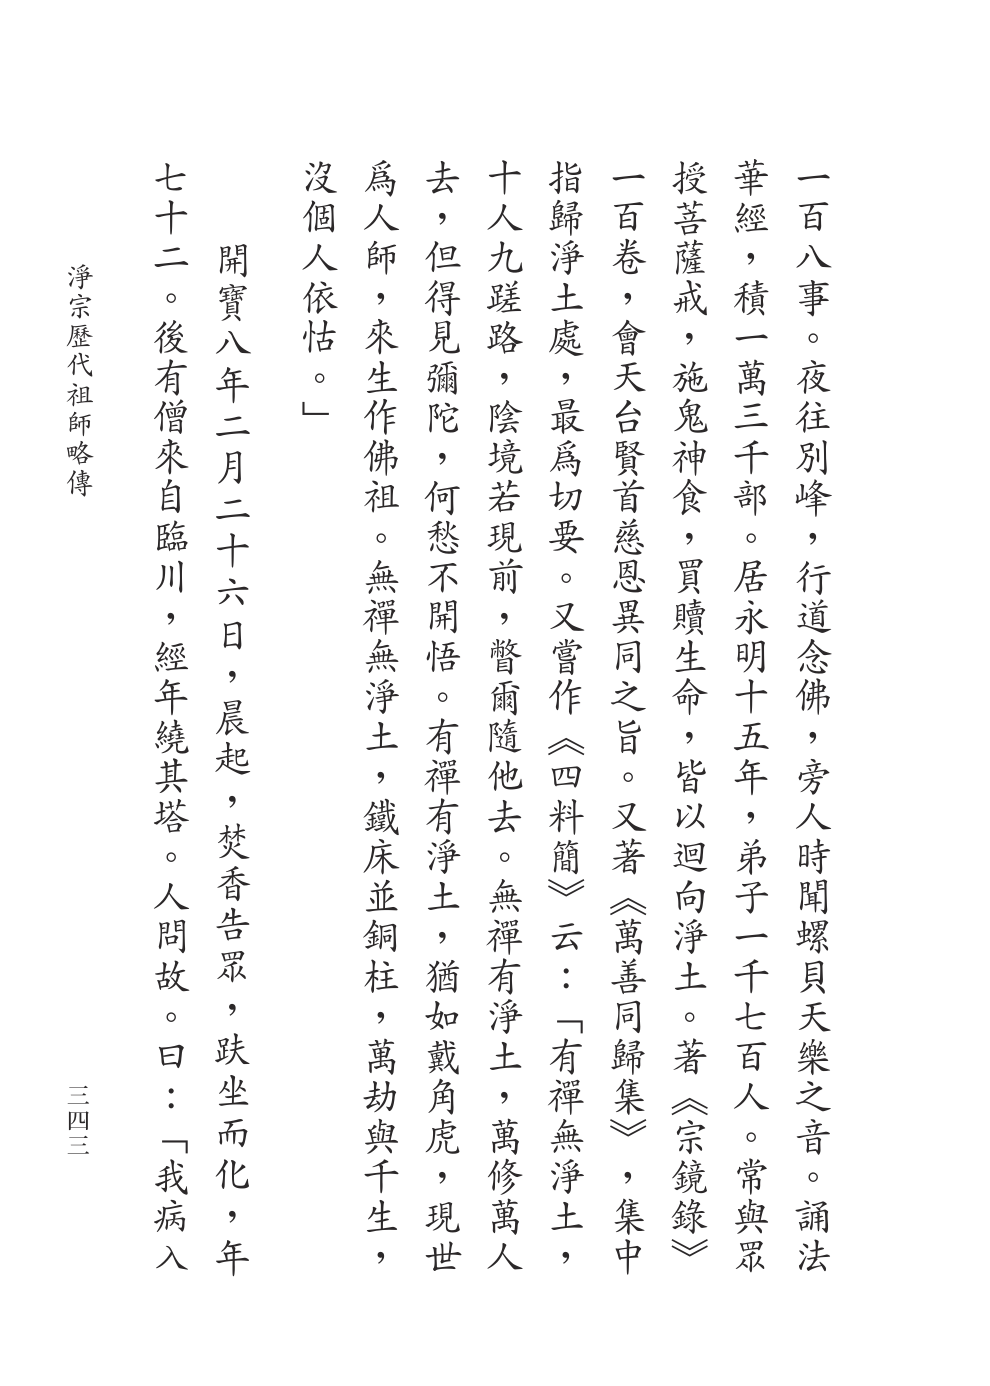 一百八事。夜往別峰，行道念佛，旁人時聞螺貝天樂之音。誦法
華經，積一萬三千部。居永明十五年，弟子一千七百人。常與眾
授菩薩戒，施鬼神食，買贖生命，皆以迴向淨土。著《宗鏡錄》
一百卷，會天台賢首慈恩異同之旨。又著《萬善同歸集》，集中
指歸淨土處，最爲切要。又嘗作《四料簡》云：「有禪無淨土，
十人九蹉路，陰境若現前，瞥爾隨他去。無禪有淨土，萬修萬人
去，但得見彌陀，何愁不開悟。有禪有淨土，猶如戴角虎，現世
爲人師，來生作佛祖。無禪無淨土，鐵床並銅柱，萬劫與千生，
沒個人依怙。」
開寶八年二月二十六日，晨起，焚香告眾，趺坐而化，年
七十二。後有僧來自臨川，經年繞其塔。人問故。曰：「我病入
淨宗歷代祖師略傳
三四三